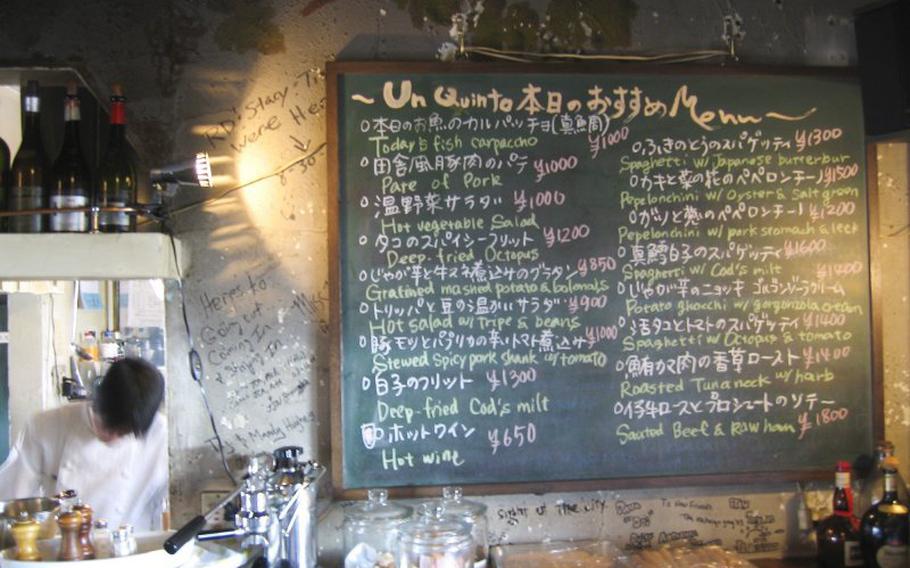 ~ Un Quinto 本日のおすすめ Menu ~
○本日のお魚のカルパッチョ(真鯛) ¥1000
Today's fish carpaccio
○田舎風豚肉のパテ ¥1000
Pate of Pork
○温野菜サラダ ¥1000
Hot vegetable Salad
○タコのスパイシーフリット ¥1200
Deep-fried Octopus
○じゃが芋と牛スネ煮込みのグラタン ¥850
Gratined mashed potato &
○トリッパと豆の温かいサラダ ¥900
Hot salad w/ Tripe & beans
○豚モツとパプリカの辛いトマト煮込み ¥1000
Stewed spicy pork shank w/ tomato
○白子のフリット ¥1300
Deep-fried Cod's milt
ホットワイン ¥650
Hot wine
○ふきのとうのスパゲッティ ¥1300
Spaghetti w/ Japanese butterbur
○カキと菜の花のペペロンチーノ ¥1500
Pepelonchini w/ Oyster &
○ガツと葱のペペロンチーノ ¥1200
Pepelonchini w/ pork stomach & leek
○真鱈白子のスパゲッティ ¥1600
Spaghetti w/ Cod's milt
○じゃが芋のニョッキ ゴルゴンゾーラクリーム ¥1400
Potato gnocchi w/ gorgonzola cream
○活タコとトマトのスパゲッティ ¥1400
Spaghetti w/ Octopus & tomato
○鮪カマ肉の香草ロースト ¥1400
Roasted Tuna neck w/ harb
○仔牛ロースとプロシュートのソテー ¥1800
Sauted Beef & Raw ham
RD: Stacy
were Here
Heres to
Going out
Coming In
& Staying In
sight of the city